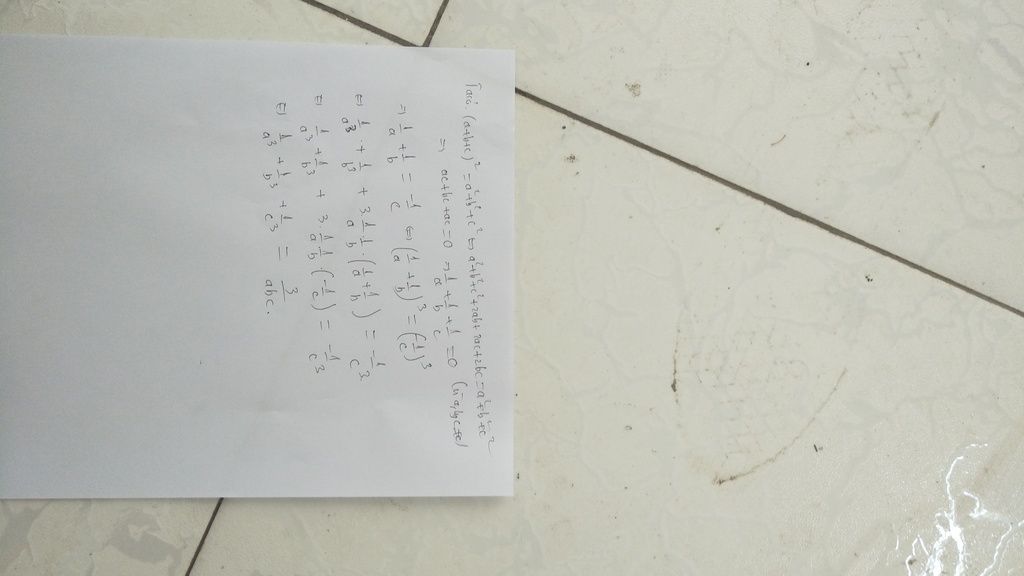 Ta có: (a+b+c)² = a²+b²+c² ⇔ a²+b²+c²+2ab+2ac+2bc = a²+b²+c²
⇒ ac+bc+ac=0 ⇒ 1/a + 1/b + 1/c = 0 (vì a,b,c ≠ 0)
⇒ 1/a + 1/b = -1/c ⇔ (1/a + 1/b)³ = (-1/c)³
⇔ 1/a³ + 1/b³ + 3·1/a·1/b·(1/a + 1/b) = -1/c³
⇔ 1/a³ + 1/b³ + 3·1/a·1/b(-1/c) = -1/c³
⇔ 1/a³ + 1/b³ + 1/c³ = 3/abc.